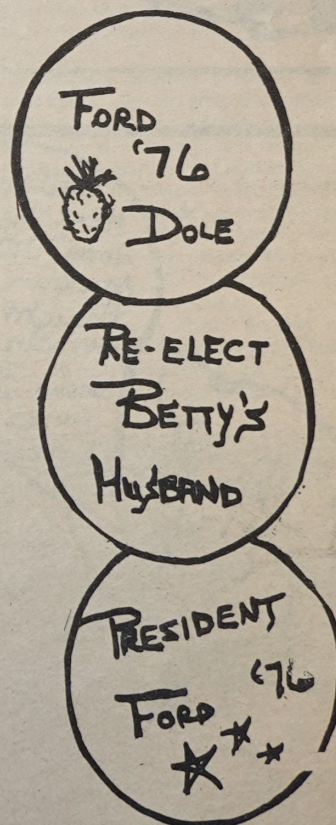 FORD
'76
DOLE
RE-ELECT
BETTY'S
HUSBAND
PRESIDENT
'76
FORD